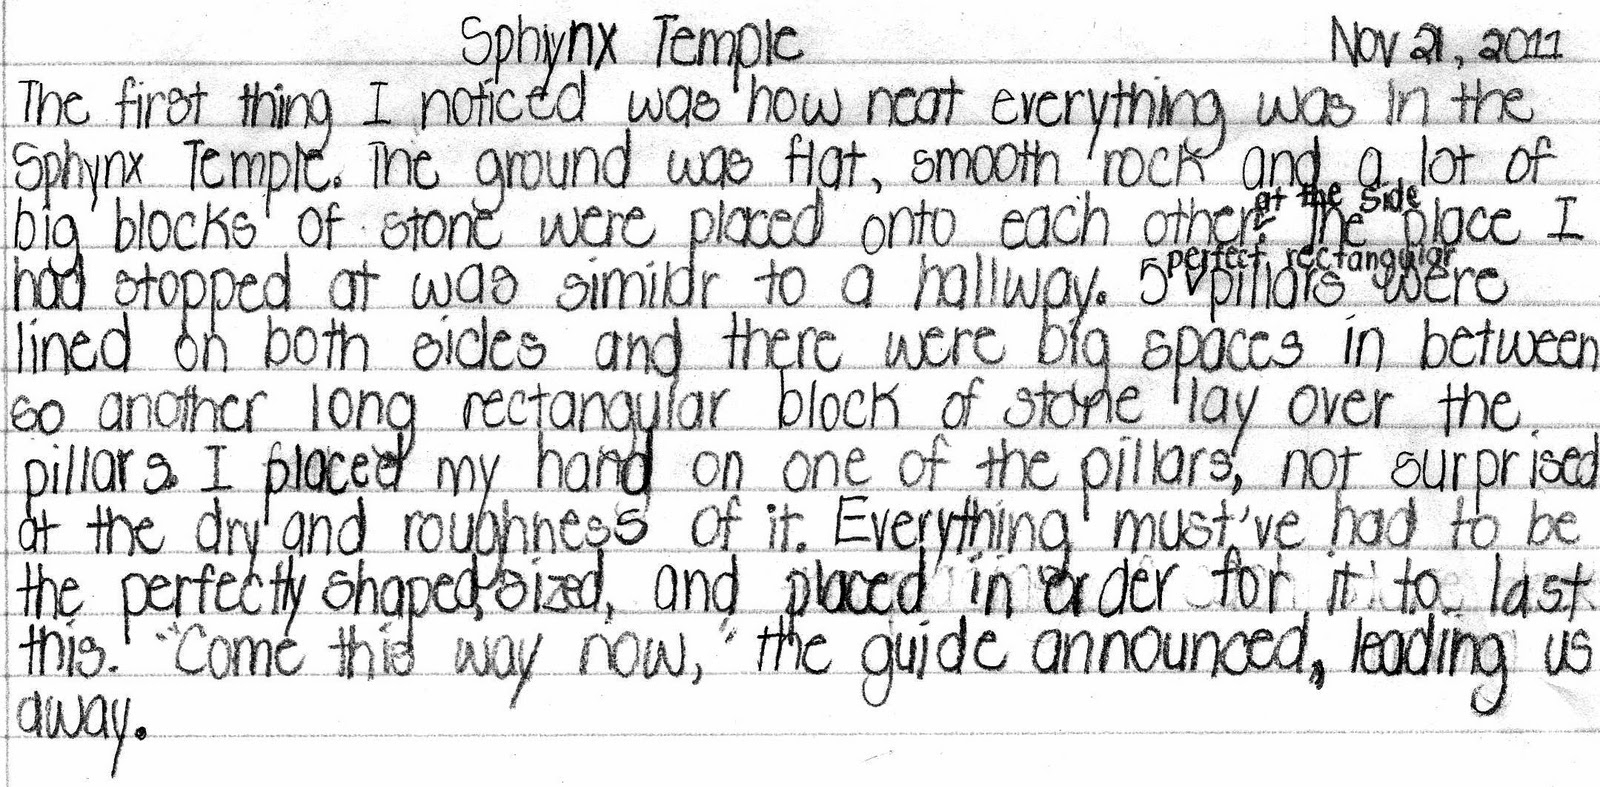 Sphynx Temple Nov 21, 2011
The first thing I noticed was how neat everything was in the
Sphynx Temple. The ground was flat, smooth rock and a lot of
at the side
big blocks of stone were placed onto each other. The place I
perfect rectangular
had stopped at was similar to a hallway. 5 pillars were
lined on both sides and there were big spaces in between
so another long rectangular block of stone lay over the
pillars. I placed my hand on one of the pillars, not surprised
at the dry and roughness of it. Everything must've had to be
the perfectly shaped, sized, and placed in order for it to last
this. "Come this way now," the guide announced, leading us
away.